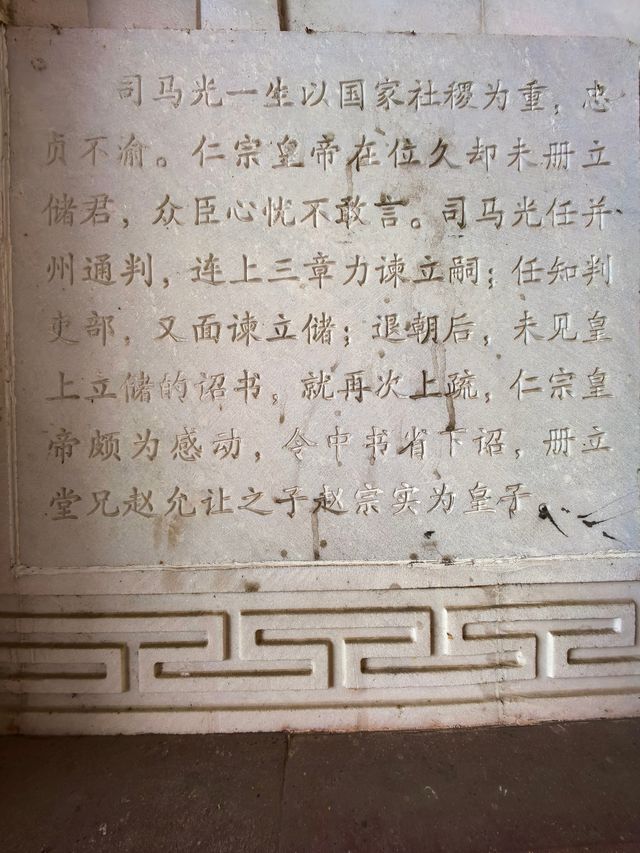 司马光一生以国家社稷为重，忠
贞不渝。仁宗皇帝在位久却未册立
储君，众臣心忧不敢言。司马光任并
州通判，连上三章力谏立嗣；任知判
吏部，又面谏立储；退朝后，未见皇
上立储的诏书，就再次上疏，仁宗皇
帝颇为感动，令中书省下诏，册立
堂兄赵允让之子赵宗实为皇子。